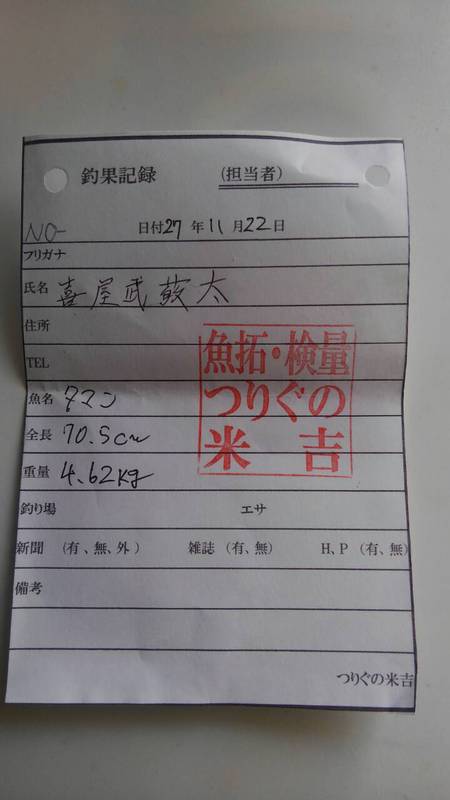 釣果記録 (担当者)
NO- 日付27年11月22日
フリガナ
氏名 喜屋武 太
住所
TEL
魚拓・検量
つりぐの
米吉
魚名 タマン
全長 70.5cm
重量 4.62kg
釣り場 エサ
新聞 (有、無、外) 雑誌 (有、無) H、P (有、無)
備考
つりぐの米吉